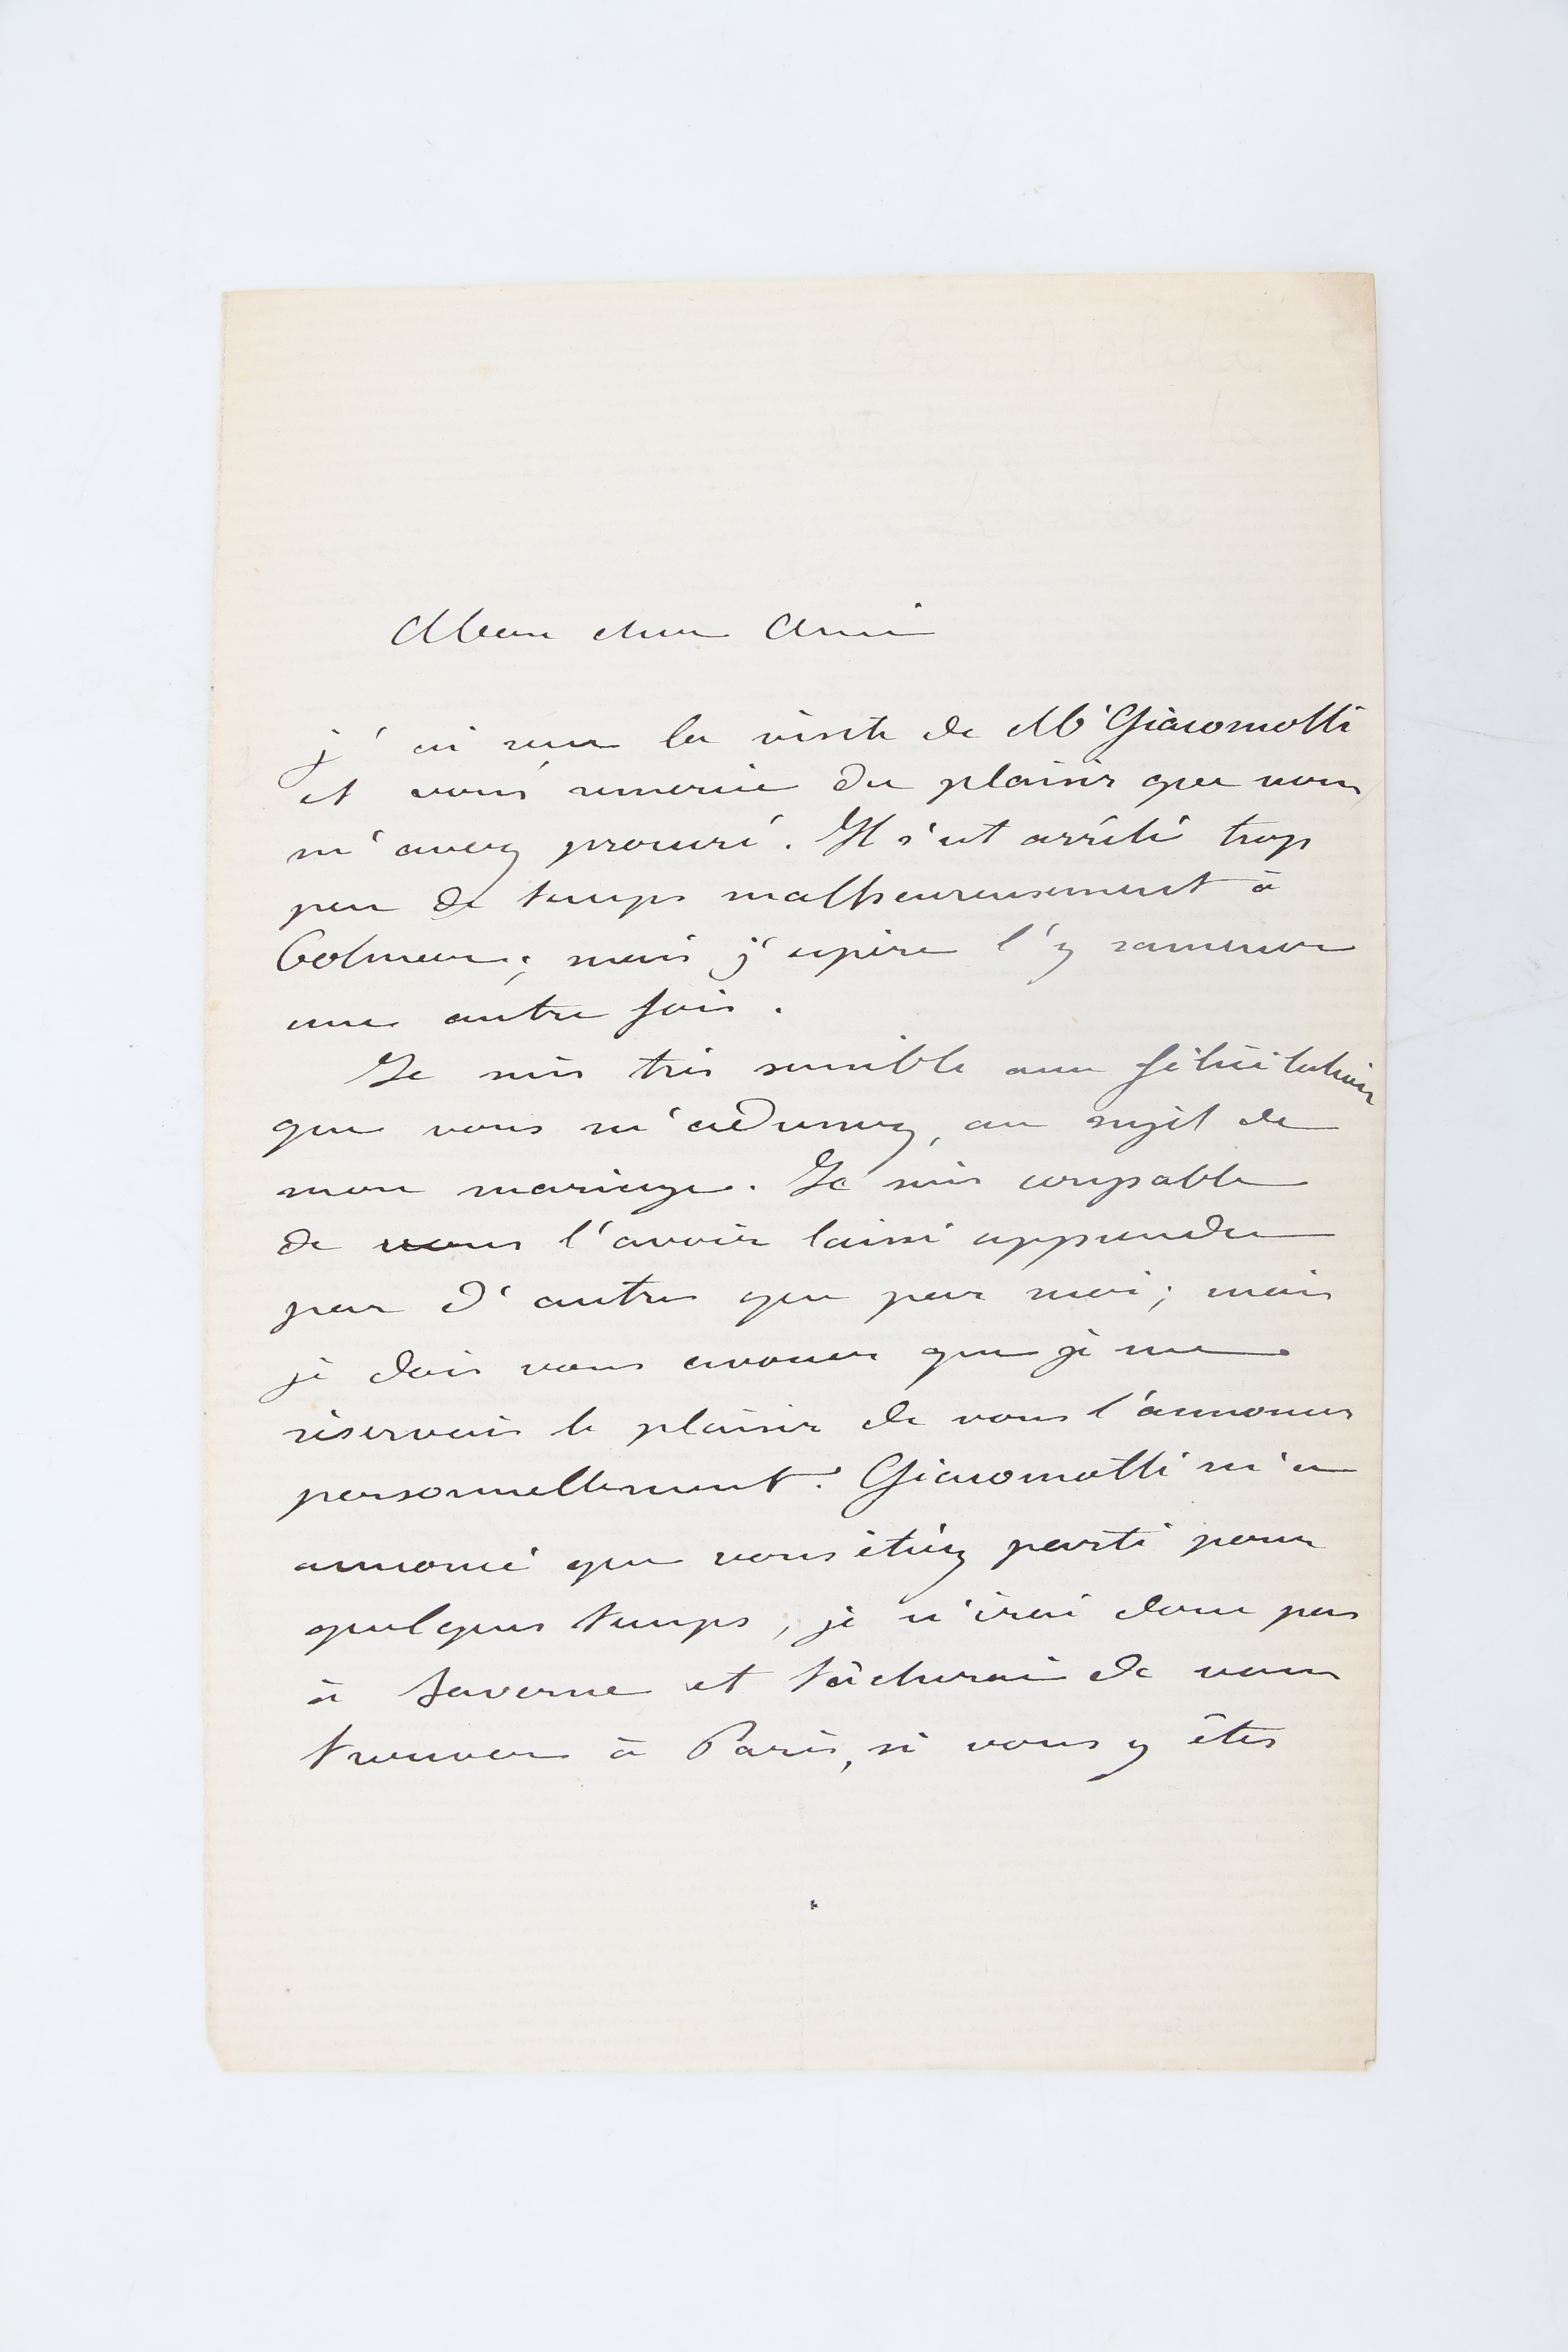 Mon cher Ami
j'ai reçu la visite de Mr Giacomotti
et vous remercie du plaisir que vous
m'avez procuré. Il s'est arrêté trop
peu de temps malheureusement à
Colmar; mais j'espère l'y ramener
une autre fois.
Je suis très sensible aux félicitations
que vous m'adressez, au sujet de
mon mariage. Je suis coupable
de vous l'avoir laissé apprendre
par d'autres que par moi; mais
je dois vous avouer que je me
réservais le plaisir de vous l'annoncer
personnellement. Giacomotti m'a
annoncé que vous étiez parti pour
quelques temps, je n'irai donc pas
à Saverne et tâcherai de vous
trouver à Paris, si vous y êtes